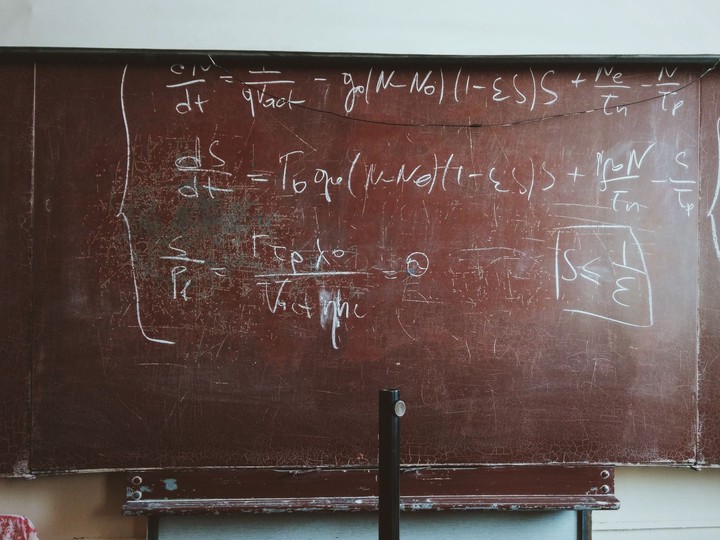 dN/dt = I/qVact - g₀(N-N₀)(1-εS)S + Ne/τn - N/τp
dS/dt = Γ₀g₀(N-N₀)(1-εS)S + N/τn - S/τp
S/Pf = Γτpλ₀/Vactηhc = ϑ
S ≤ 1/ε